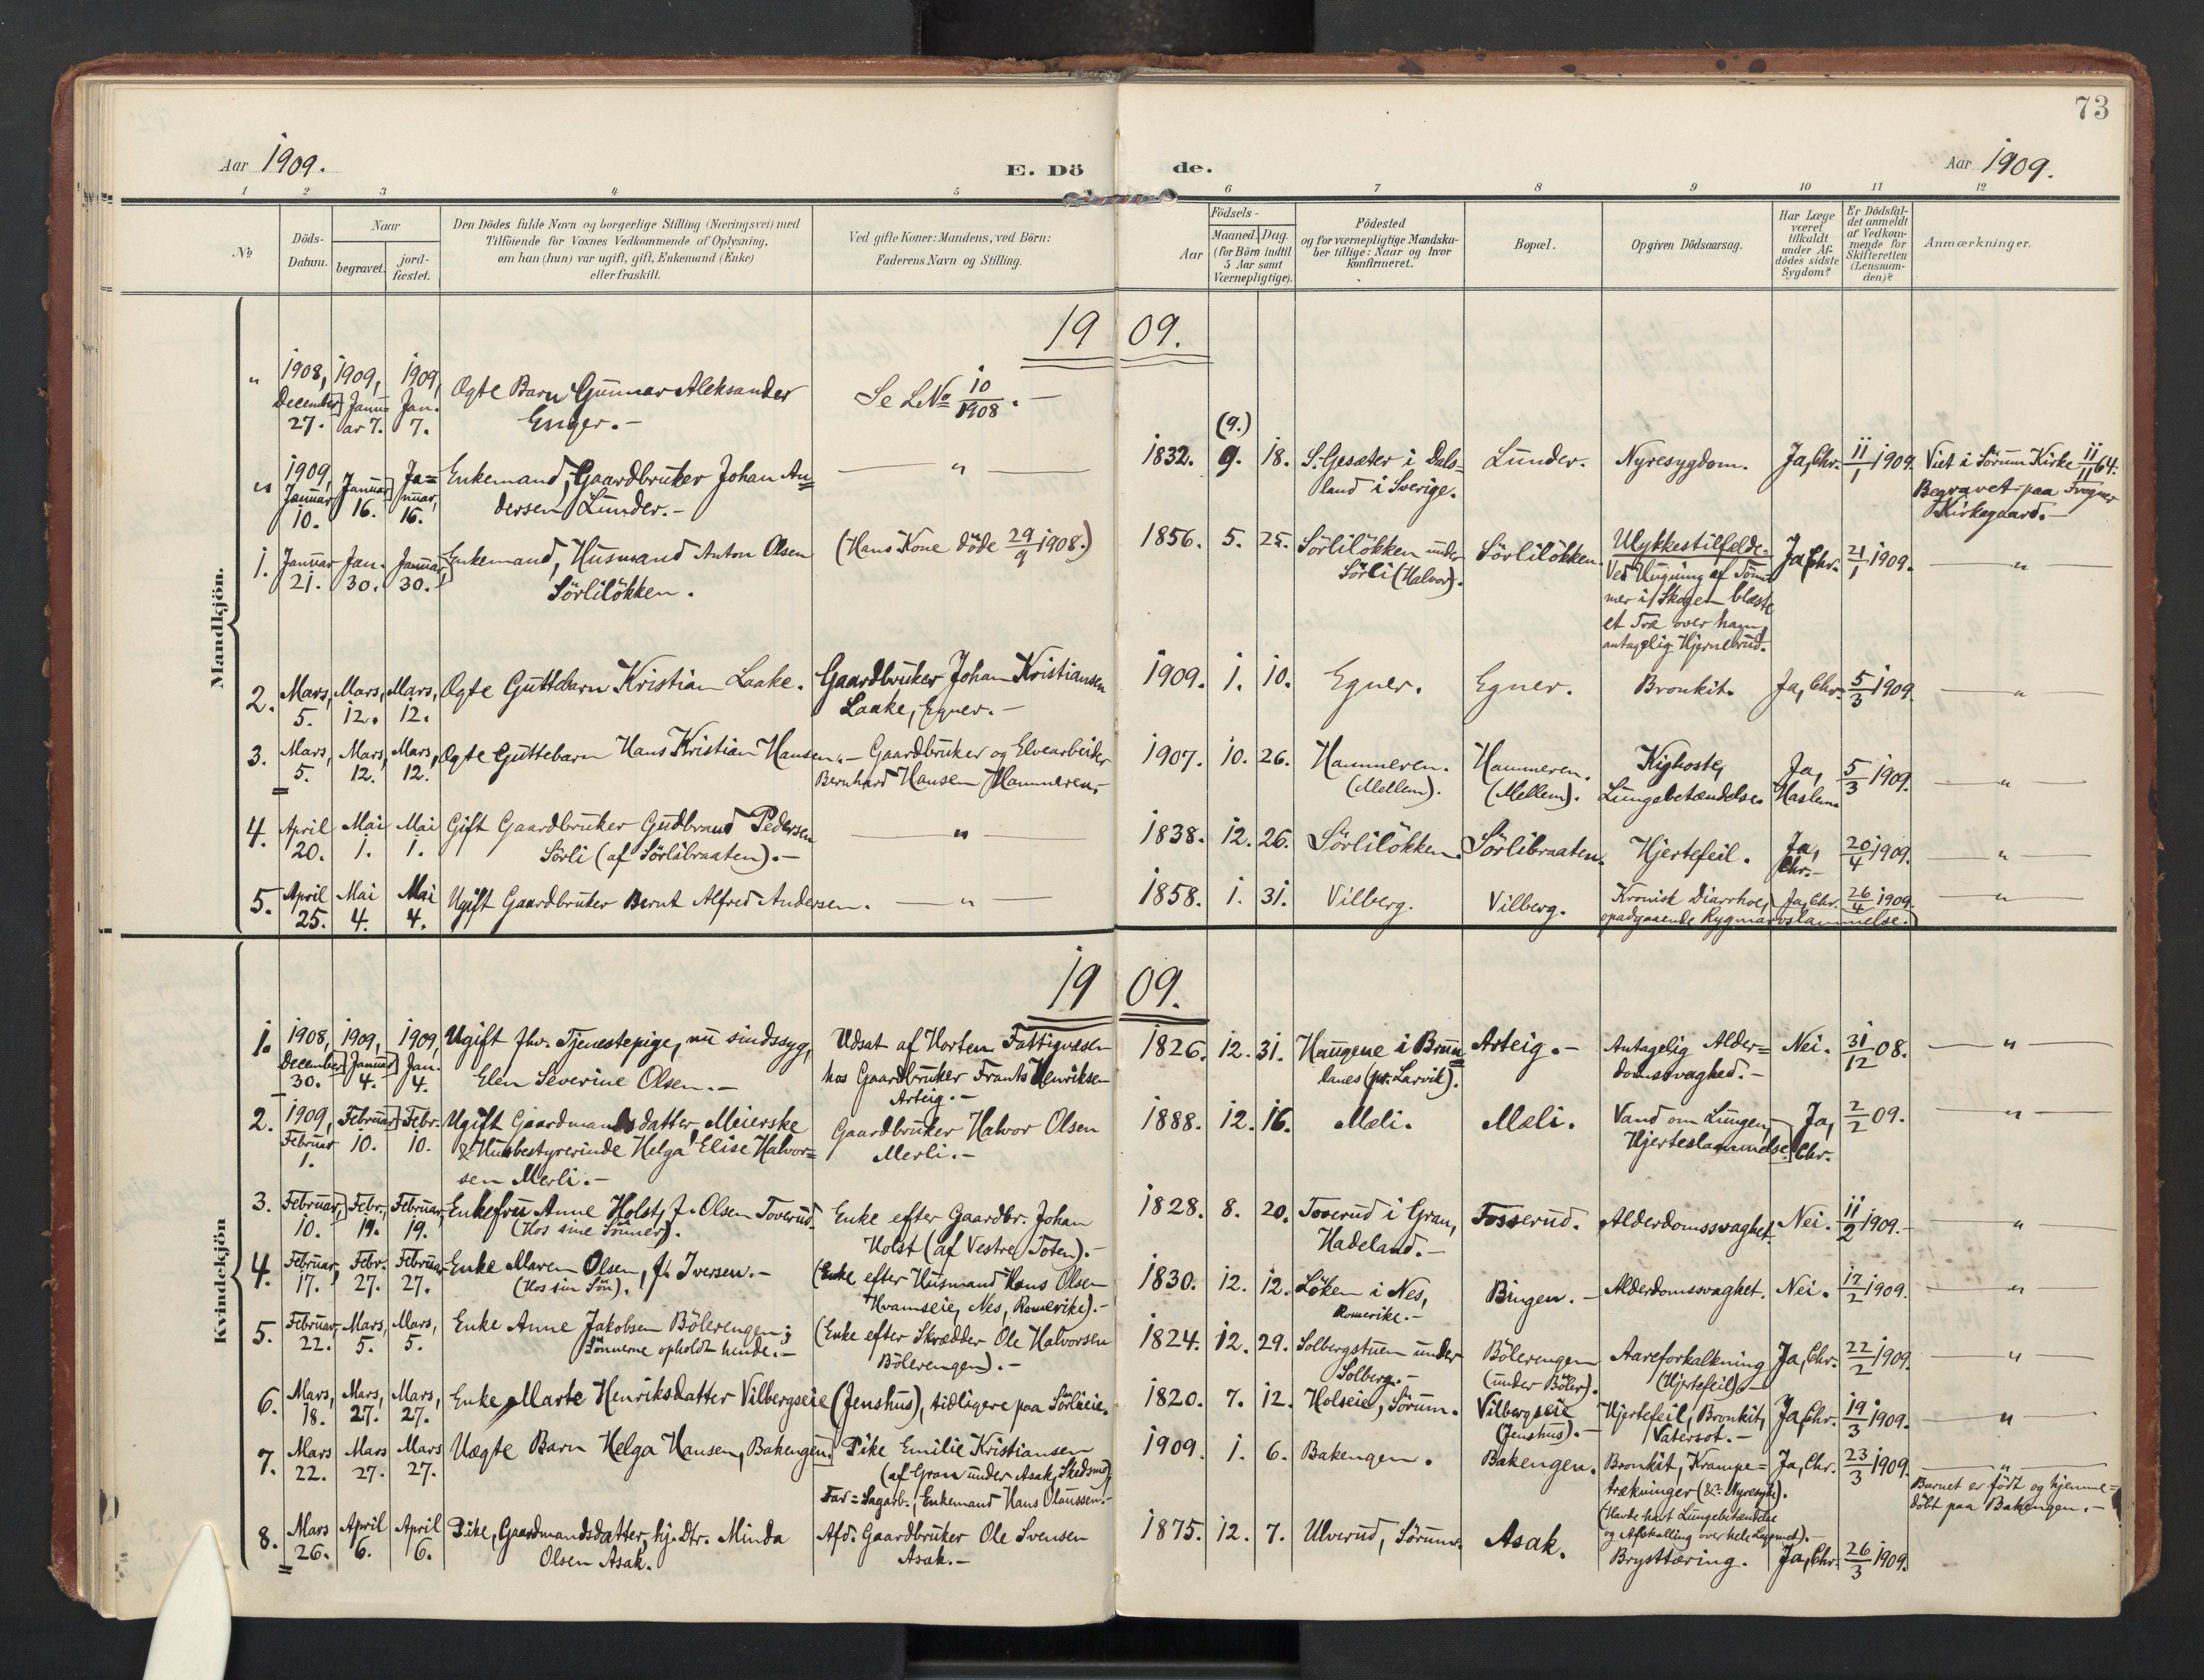 73
Aar 1909. E. Dö de. Aar 1909.
1 2 3 4 5 6 7 8 9 10 11 12
№
Döds-
Datum.
Naar
begravet.
jord-
fæstet.
Den Dödes fulde Navn og borgerlige Stilling (Næringsvei) med
Tilföiende for Voxnes Vedkommende af Oplysning,
om han (hun) var ugift, gift, Enkemand (Enke)
eller fraskilt.
Ved gifte Koner: Mandens, ved Börn:
Faderens Navn og Stilling.
Födsels-
Aar
Maaned. Dag.
(for Börn indtil
5 Aar samt
Værnepligtige).
Födested
og for værnepligtige Mandska-
ber tillige: Naar og hvor
konfirmeret.
Bopæl.
Opgiven Dödsaarsag.
Har Læge
været
tilkaldt
under Af-
dödes sidste
Sygdom?
Er Dödsfal-
det anmeldt
af Vedkom-
mende for
Skifteretten
(Lensman-
den)?
Anmærkninger.
Mandkjön.
1909.
" 1908, December 27. 1909, Janu=ar 7. 1909, Jan. 7.
Ægte Barn Gunnar Aleksander
Enger.-
Se L№ 10/1908.-
" 1909, Januar 10. Januar 16. Ja=nuar, 16.
Enkemand, Gaardbruker Johan An=
dersen Lunder.-
— " —
1832. (9.) 9. 18.
S. Gesæter i Dals=
land i Sverige.
Lunder.
Nyresygdom.
Ja, Chr.
11/1 1909.
Viet i Sörum Kirke 11/11 64.
Begravet paa Frogner
Kirkegaard.-
1. Januar 21. Jan. 30. Januar 30.
Enkemand, Husmand Anton Olsen
Sörlilökken.
(Hans Kone döde 29/9 1908.)
1856. 5. 25.
Sörlilökken under
Sörli (Halvor).
Sörlilökken.
Ulykkestilfælde.-
Ved Hugning af Töm=
mer i Skogen blæste
et Træ over ham,
antagelig Hjernebrud.
Ja, Chr.
21/1 1909.
— " —
2. Mars, 5. Mars, 12. Mars, 12.
Ægte Guttebarn Kristian Laake.
Gaardbruker Johan Kristiansen
Laake, Egner.-
1909. 1. 10.
Egner.
Egner.
Bronkit.
Ja, Chr.
5/3 1909.
— " —
3. Mars, 5. Mars, 12. Mars, 12.
Ægte Guttebarn Hans Kristian Hansen.-
Gaardbruker og Elvearbeider
Bernhard Hansen Hammeren.-
1907. 10. 26.
Hammeren.
(Mellem).
Hammeren.
(Mellem).
Kighoste,
Lungebetændelse.
Ja,
Haslem
5/3 1909.
— " —
4. April 20. Mai 1. Mai 1.
Gift Gaardbruker Gudbrand Pedersen
Sörli (af Sörlibraaten).-
— " —
1838. 12. 26.
Sörlilökken.
Sörlibraaten.
Hjertefeil.
Ja,
Chr.-
20/4 1909.
— " —
5. April 25. Mai 4. Mai 4.
Ugift Gaardbruker Bernt Alfred Andersen.
— " —
1858. 1. 31.
Vilberg.
Vilberg.
Kronisk Diarrhoe,
opadgaaende Rygmarvslammelse.
Ja, Chr.
26/4 1909.
— " —
Kvindekjön
1909.
1. 1908, December 30. 1909, Januar 4. 1909, Jan. 4.
Ugift fhv. Tjenestepige, nu sindssyg,
Elen Severine Olsen.-
Udsat af Horten Fattigvæsen
hos Gaardbruker Frants Henriksen
Arteig.-
1826. 12. 31.
Haugene i Brun=
lanes (pr. Larvik).
Arteig.-
Antagelig Alder=
domssvaghed.-
Nei.
31/12 08.
— " —
2. 1909, Februar 1. Februar 10. Febr. 10.
Ugift Gaardmandsdatter, Meierske
& Husbestyrerinde Helga Elise Halvor=
sen Merli.-
Gaardbruker Halvor Olsen
Merli.-
1888. 12. 16.
Mæli.
Mæli.
Vand om Lungen,
Hjerteslammelse.
Ja,
Chr.
2/2 09.
— " —
3. Februar, 10. Febr., 19. Februar, 19.
Enkefru Anne Holst, f. Olsen Toverud.
(Hos sine Sönner).
Enke efter Gaardbr. Johan
Holst (af Vestre Toten).-
1828. 8. 20.
Toverud i Gran,
Hadeland.-
Fosserud.
Alderdomssvaghet.
Nei.
11/2 1909.-
— " —
4. Februar, 17. Febr. 27. Februar 27.
Enke Maren Olsen, f. Iversen.-
(Hos sin Sön).
(Enke efter Husmand Hans Olsen
Hvamseie, Nes, Romerike).-
1830. 12. 12.
Löken i Nes,
Romerike.-
Bingen.-
Alderdomssvaghet.
Nei.
17/2 1909.
— " —
5. Februar, 22. Mars, 5. Mars, 5.
Enke Anne Jakobsen Bölerengen;
Sönnerne opholdt hende.-
(Enke efter Skrædder Ole Halvorsen
Bölerengen).-
1824. 12. 29.
Solbergstuen under
Solberg.-
Bölerengen
(under Böler).
Aareforkalkning
(Hjertefeil).-
Ja, Chr.
22/2 1909.
— " —
6. Mars, 18. Mars, 27. Mars, 27.
Enke Marte Henriksdatter Vilbergseie (Jenshus), tidligere paa Sörlieie.
1820. 7. 12.
Holseie, Sörum.
Vilbergseie
(Jenshus).-
Hjertefeil, Bronkit,
Vatersot.-
Ja, Chr.
19/3 1909.
— " —
7. Mars 22. Mars 27. Mars 27.
Uægte Barn Helga Hansen, Bakengen.
Pike Emilie Kristiansen
(af Gran under Asak, Skedsmo)
Far = Sagarb., Enkemand Hans Olaussen.-
1909. 1. 6.
Bakengen.
Bakengen.
Bronkit, Krampe=
trækninger (& Nyresyk).
(Havde havt Lungebetændelse
og Afskalling over hele Legemet).-
Ja, Chr.
23/3 1909.
— " —
Barnet er födt og hjemme=
döbt paa Bakengen.-
8. Mars 26. April 6. April 6.
Pike, Gaardmandsdatter, hj. Dtr. Minda
Olsen Asak.
Afd. Gaardbruker Ole Svensen
Asak.-
1875. 12. 7.
Ulverud, Sörum.
Asak.
Brysttæring.
Ja, Chr.
26/3 1909.